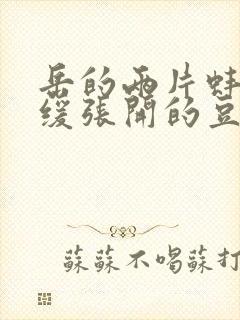 岳的两片蚌
缓张開的豆
蘇蘇不喝蘇打